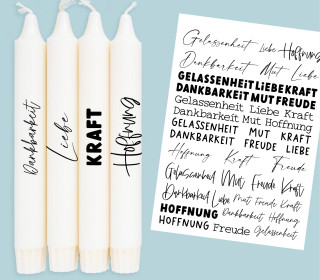 Dankbarkeit
Liebe
KRAFT
Hoffnung
Gelassenheit Liebe Hoffnung
Dankbarkeit Mut Liebe
GELASSENHEIT LIEBE KRAFT
DANKBARKEIT MUT FREUDE
Gelassenheit Liebe Kraft
Dankbarkeit Mut Hoffnung
GELASSENHEIT MUT KRAFT
DANKBARKEIT FREUDE LIEBE
Hoffnung Kraft Freude
Gelassenheit Mut Freude Kraft
Dankbarkeit Liebe Mut Freude Kraft
HOFFNUNG Dankbarkeit Hoffnung
HOFFNUNG Freude Gelassenheit